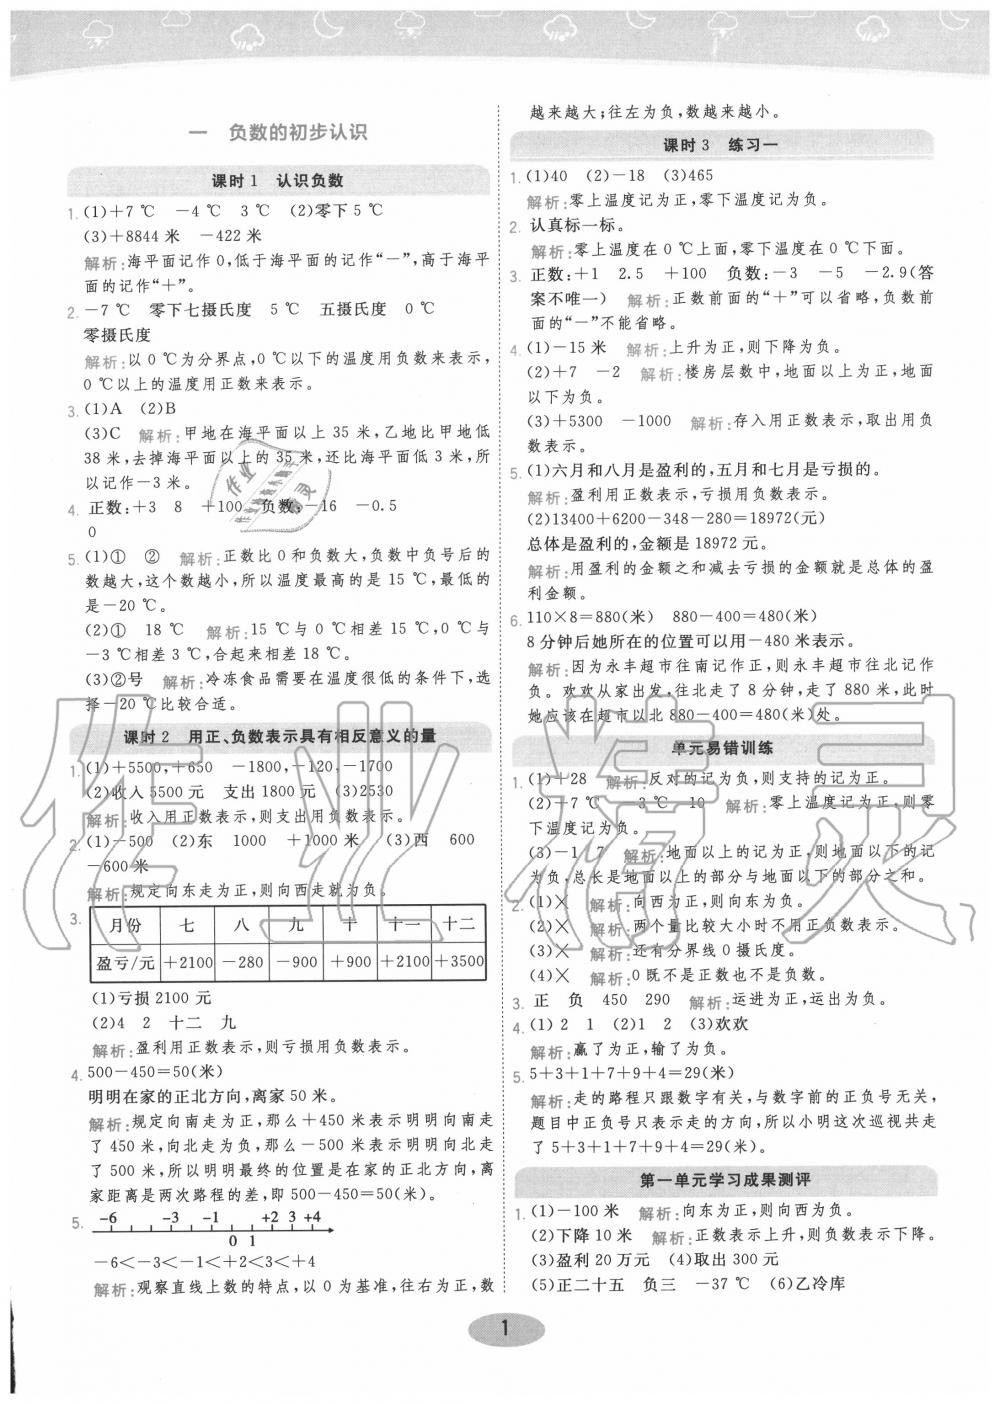 一 负数的初步认识
课时1 认识负数
1. (1)+7 ℃ -4 ℃ 3 ℃ (2)零下 5 ℃
(3)+8844 米 -422 米
解析:海平面记作 0,低于海平面的记作“-”,高于海平
面的记作“+”。
2. -7 ℃ 零下七摄氏度 5 ℃ 五摄氏度 0 ℃
零摄氏度
解析:以 0 ℃为分界点,0 ℃以下的温度用负数来表示,
0 ℃以上的温度用正数来表示。
3. (1)A (2)B
(3)C 解析:甲地在海平面以上 35 米,乙地比甲地低
38 米,去掉海平面以上的 35 米,还比海平面低 3 米,所
以记作-3 米。
4. 正数:+3 8 +100 负数:-16 -0.5
0
5. (1)① ② 解析:正数比 0 和负数大,负数中负号后的
数越大,这个数越小,所以温度最高的是 15 ℃,最低的
是-20 ℃。
(2)① 18 ℃ 解析:15 ℃与 0 ℃相差 15 ℃,0 ℃与
-3 ℃相差 3 ℃,合起来相差 18 ℃。
(3)②号 解析:冷冻食品需要在温度很低的条件下,选
择-20 ℃比较合适。
课时2 用正、负数表示具有相反意义的量
1. (1)+5500,+650 -1800,-120,-1700
(2)收入 5500 元 支出 1800 元 (3)2530
解析:收入用正数表示,则支出用负数表示。
2. (1)-500 (2)东 1000 +1000 米 (3)西 600
-600 米
解析:规定向东走为正,则向西走就为负。
3. 月份 七 八 九 十 十一 十二
盈亏/元 +2100 -280 -900 +900 +2100 +3500
(1)亏损 2100 元
(2)4 2 十二 九
解析:盈利用正数表示,则亏损用负数表示。
4. 500-450=50(米)
明明在家的正北方向,离家 50 米。
解析:规定向南走为正,那么+450 米表示明明向南走
了 450 米,向北走为负,那么-500 米表示明明向北走
了 500 米,所以明明最终的位置是在家的正北方向,离
家距离是两次路程的差,即 500-450=50(米)。
5. -6 -3 -1 +2 3 +4
0 1
-6<-3<-1<+2<3<+4
解析:观察直线上数的特点,以 0 为基准,往右为正,数
越来越大;往左为负,数越来越小。
课时3 练习一
1. (1)40 (2)-18 (3)465
解析:零上温度记为正,零下温度记为负。
2. 认真标一标。
解析:零上温度在 0 ℃上面,零下温度在 0 ℃下面。
3. 正数:+1 2.5 +100 负数:-3 -5 -2.9(答
案不唯一) 解析:正数前面的“+”可以省略,负数前
面的“-”不能省略。
4. (1)-15 米 解析:上升为正,则下降为负。
(2)+7 -2 解析:楼房层数中,地面以上为正,地面
以下为负。
(3)+5300 -1000 解析:存入用正数表示,取出用负
数表示。
5. (1)六月和八月是盈利的,五月和七月是亏损的。
解析:盈利用正数表示,亏损用负数表示。
(2)13400+6200-348-280=18972(元)
总体是盈利的,金额是 18972 元。
解析:用盈利的金额之和减去亏损的金额就是总体的盈
利金额。
6. 110×8=880(米) 880-400=480(米)
8 分钟后她所在的位置可以用-480 米表示。
解析:因为永丰超市往南记作正,则永丰超市往北记作
负。欢欢从家出发,往北走了 8 分钟,走了 880 米,此时
她应该在超市以北 880-400=480(米)处。
单元易错训练
1. (1)+28 解析:反对的记为负,则支持的记为正。
(2)-7 ℃ -3 ℃ 10 解析:零上温度记为正,则零
下温度记为负。
(3)-1 7 解析:地面以上的记为正,则地面以下的记
为负,总长是地面以上的部分与地面以下的部分之和。
2. (1)× 解析:向西为正,则向东为负。
(2)× 解析:两个量比较大小时不用正负数表示。
(3)× 解析:还有分界线 0 摄氏度。
(4)× 解析:0 既不是正数也不是负数。
3. 正 负 450 290 解析:运进为正,运出为负。
4. (1) 2 1 (2)1 2 (3)欢欢
解析:赢了为正,输了为负。
5. 5+3+1+7+9+4=29(米)
解析:走的路程只跟数字有关,与数字前的正负号无关,
题目中正负号只表示走的方向,所以小明这次巡视共走
了 5+3+1+7+9+4=29(米)。
第一单元学习成果测评
1. (1)-100 米 解析:向东为正,则向西为负。
(2)下降 10 米 解析:正数表示上升,则负数表示下降。
(3)盈利 20 万元 (4)取出 300 元
(5)正二十五 负三 -37 ℃ (6)乙冷库
1
作业精灵